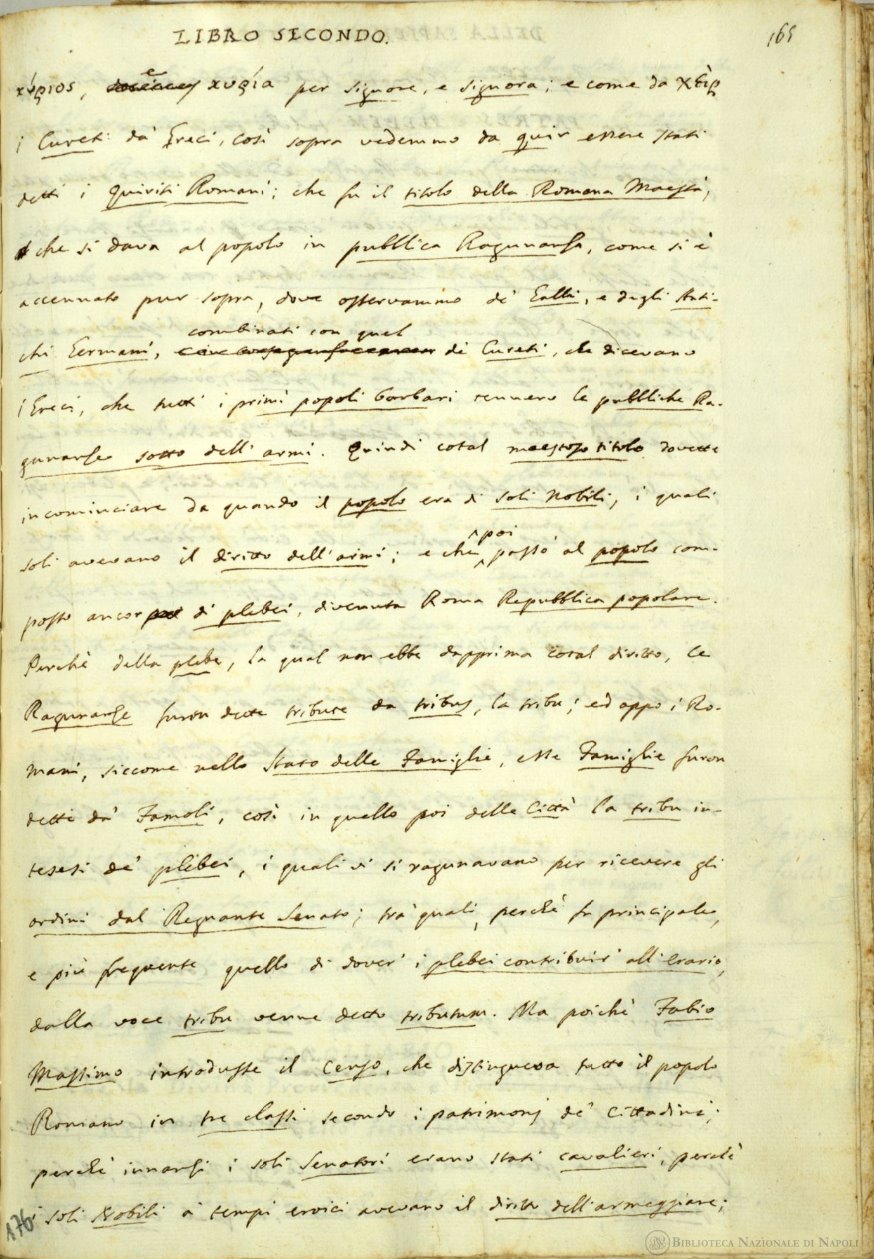 LIBRO SECONDO.
165
κύριος, e κυρία per signore, e signora; e come da χεὶρ
i Cureti da' Greci, così sopra vedemmo da quir essere stati
detti i Quiriti Romani; che fu il titolo della Romana Maestà,
che si dava al popolo in pubblica Ragunanza, come si è
accennato pur sopra, dove osservammo de' Galli, e degli Anti-
combinati con quel
chi Germani, de' Cureti, che dicevano
i Greci, che tutti i primi popoli barbari tennero le pubbliche Ra-
gunanze sotto dell'armi. Quindi cotal maestoso titolo dovette
incominciare da quando il popolo era di soli nobili, i quali
soli avevano il diritto dell'armi; e che poi passò al popolo com-
posto ancor di plebei, divenuta Roma Repubblica popolare.
Perchè della plebe, la qual non ebbe dapprima cotal diritto, le
Ragunanze furon dette tribute da tribus, la tribu; ed appo i Ro-
mani, siccome nello Stato delle Famiglie, esse Famiglie furon
dette da' Famoli, così in quello poi delle Città la tribu in-
tesesi de' plebei, i quali vi si ragunavano per ricevere gli
ordini dal Regnante Senato; tra' quali, perchè fu principale,
e più frequente quello di dover' i plebei contribuir' all'erario,
dalla voce tribu venne detto tributum. Ma poichè Fabio
Massimo introdusse il Censo, che distingueva tutto il popolo
Romano in tre classi secondo i patrimonj de' Cittadini;
perchè innanzi i soli Senatori erano stati cavalieri, perchè
i soli Nobili a' tempi eroici avevano il diritto dell'armeggiare;
176
BIBLIOTECA NAZIONALE DI NAPOLI